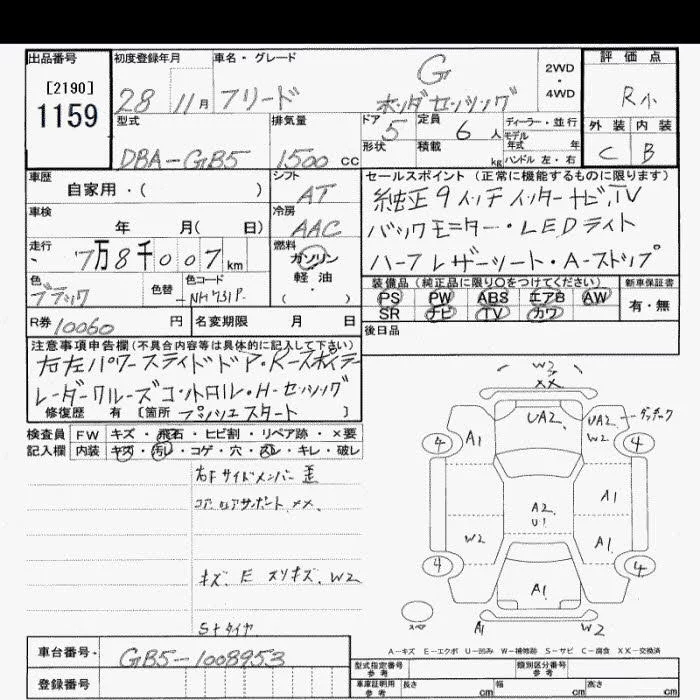 出品番号
[2190]
1159
初度登録年月
28 11月
車名・グレード
フリード G
ホンダセンシング
2WD
・
4WD
評価点
R小
外装 内装
C B
型式
DBA-GB5
排気量
1500 cc
ドア
5
形状
定員
6 人
積載
kg
ディーラー・並行
モデル
年式 年
ハンドル 左・右
車歴
自家用・( )
シフト
AT
車検
年 月( 日)
冷房
AAC
走行
7万8千007km
燃料
ガソリン
軽油
・( )
色
ブラック
色替
色コード
NH731P
R券 10060 円
名変期限 月 日
セールスポイント (正常に機能するものに限ります)
純正9インチインターナビ,TV
バックモニター・LEDライト
ハーフレザーシート・A-ストップ
装備品(純正品に限り○をつけてください)
PS PW ABS エアB AW
SR ナビ TV カワ
新車保証書
有・無
後日品
注意事項申告欄(不具合内容等は具体的に記入して下さい)
右左パワースライドドア・Rースポイラー
レーダークルーズコントロル・H-センシング
プッシュスタート
修復歴 有 [箇所 ]
検査員
記入欄
FW キズ・飛石・ヒビ割・リペア跡・×要
内装 キズ・汚レ・コゲ・穴・スレ・キレ・破レ
右Fサイドメンバー歪
コアロアサポート ××
キズ、E スリキズ、W2
Sトタイヤ
W2
××
UA2
UA2
W2
ダッチーク
A1
4
4
A1
A2
U1
W2
A1
4
4
A1
A1
W2
スペア
A-キズ E-エクボ U-凹み W-補修跡 S-サビ C-腐食 XX-交換済
車台番号・
GB5-1008953
登録番号
型式指定番号
参考
類別区分番号
参考
車庫証明用
参考
長さ cm
幅 cm
高さ cm